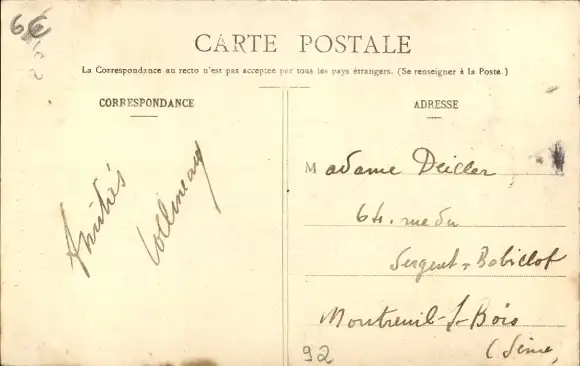 6€
CARTE POSTALE
La Correspondance au recto n'est pas acceptée par tous les pays étrangers. (Se renseigner à la Poste.)
CORRESPONDANCE
Amitiés
Collineau
ADRESSE
Madame Deiller
64. rue du
Sergent Bobillot
Montreuil-s/-Bois
(Seine)
92